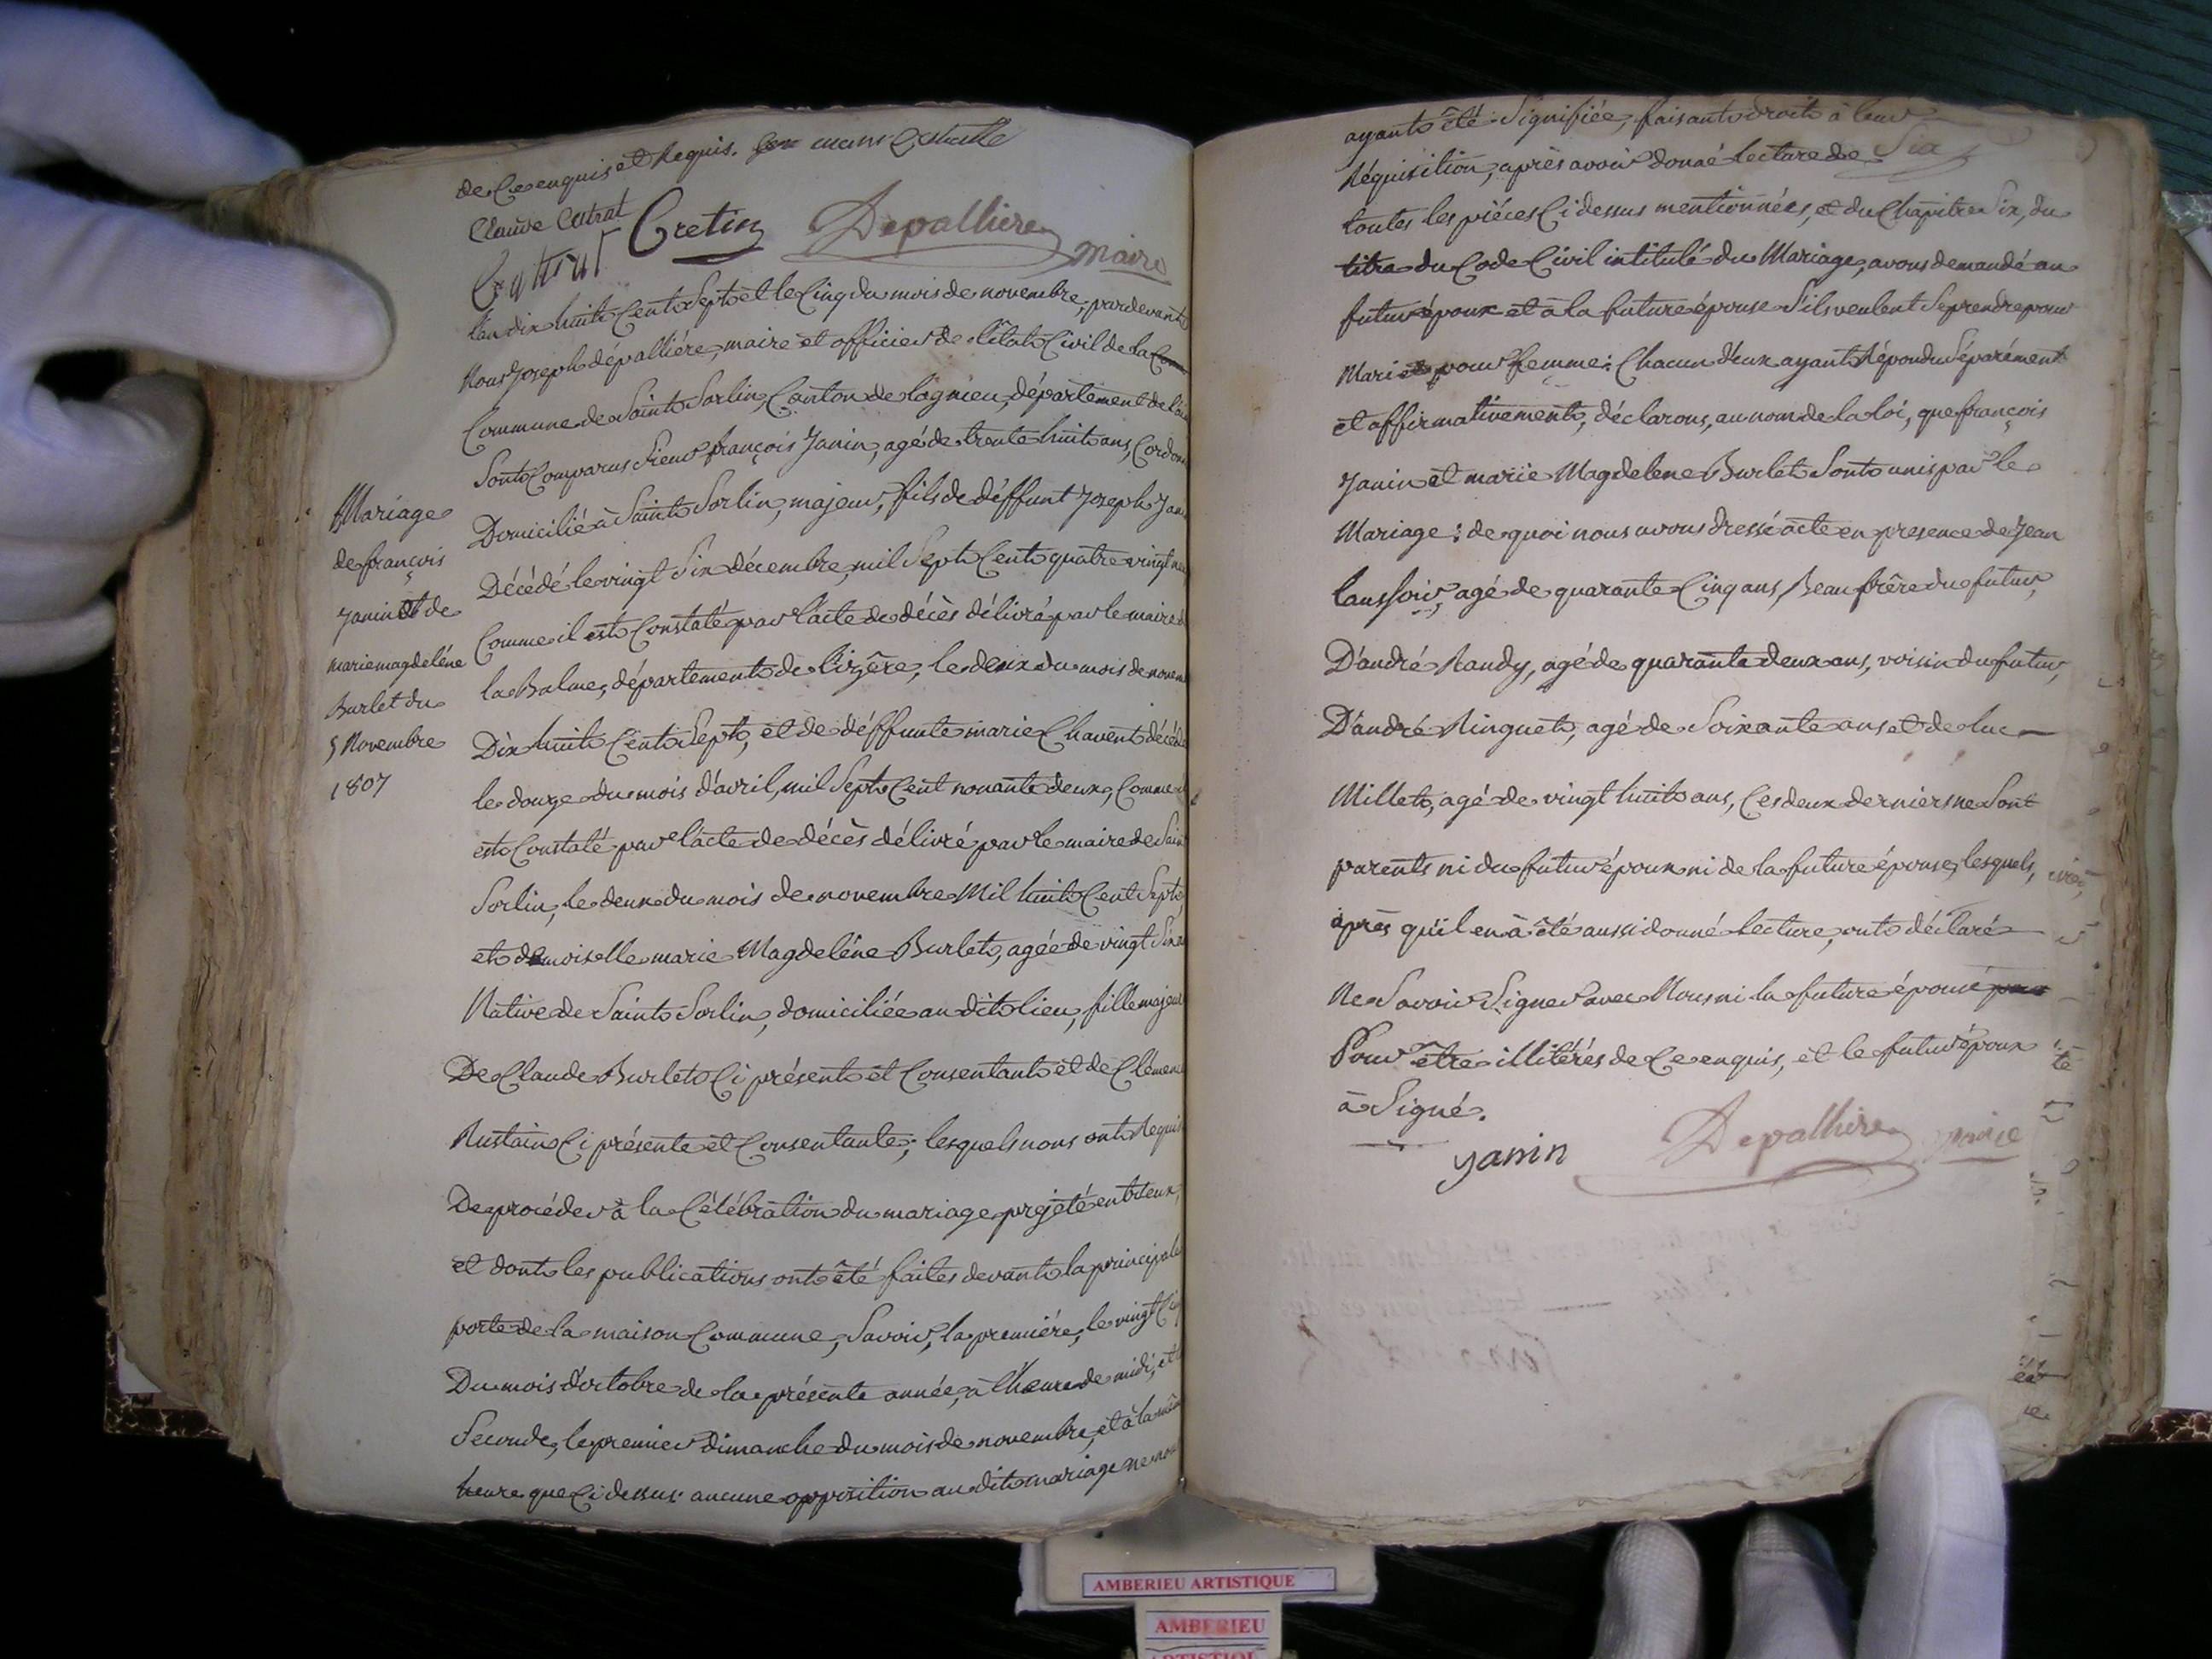 de Ce enquis et Requis.
Claude Cutrat
Cretin Depalliere maire
l'an dix huit Cent Sept et le Cinq du mois de novembre, pardevant
Nous Joseph dépalliére, maire et officier de l'état Civil de la
Commune de Saint Sorlin, Canton de lagnieu, département de l'ain
Sont Comparus Sieur françois Janin, agé de trente huit ans, Cordon
Domicilié à Saint Sorlin, majeur, fils de déffunt Joseph Jan
Décédé le vingt Six décembre, mil Sept Cent quatre vingt
Comme il est Constaté par l'acte de décès délivré par le maire d
la Balme, département de l'izêre, le deux du mois de novem
Dix huit Cent Sept, et de déffunte marie Chavent décédé
le douze du mois d'avril, mil Sept Cent nonante deux, Comme
est Constaté par l'acte de décès délivré par le maire de Sain
Sorlin, le deux du mois de novembre Mil huit Cent Sept,
et demoiselle marie Magdeléne Burlet, agée de vingt Six
Native de Saint Sorlin, domiciliée au dit lieu, fille majeu
De Claude Burlet Ci présent et Consentant et de Clémen
Rustain Ci présente et Consentante; lesquels nous ont Requi
De procéder à la Célébration du mariage projété entr'eux,
et dont les publications ont êté faites devant la principale
porte de la maison Commune, Savoir, la premiére, le vingt Cin
Du mois d'octobre de la présente année, à l'heure de midi, et
Seconde, le premier dimanche du mois de novembre, et à la mêm
heure que Ci dessus. aucune opposition au dit mariage ne nou
Mariage
de françois
Janin et de
marie magdeléne
Burlet du
5 Novembre
1807
ayant êté Signifiée, faisant droit à leur
Réquisition, après avoir donné lecture de
toutes les piéces Ci dessus mentionnées, et du Chapitre Six, du
titre du Code Civil intitulé du Mariage, avons demandé au
futur époux et à la future épouse S'ils veulent Se prendre pour
Mari et pour femme: Chacun d'eux ayant Répondu Séparément
et affirmativement, déclarons, au nom de la loi, que françois
Janin et marie Magdelene Burlet Sont unis par le
Mariage: de quoi nous avons dressé acte en presence de Jean
agé de quarante Cinq ans, Beau frêre du futur,
D'andré Randy, agé de quarante deux ans, voisin du futur,
D'andré Ringuet, agé de Soixante ans et de luc
Millet, agé de vingt huit ans, Ces deux derniers ne Sont
parents ni du futur époux ni de la future épouse, lesquels,
après qu'il en à êté aussi donné lecture, ont déclaré
Ne Savoir Signer avec Nous ni la future épouse
Pour être illitérés de Ce enquis, et le futur époux
à Signé.
yanin Depalliere maire
AMBERIEU ARTISTIQUE
AMBERIEU
ARTISTIQUE